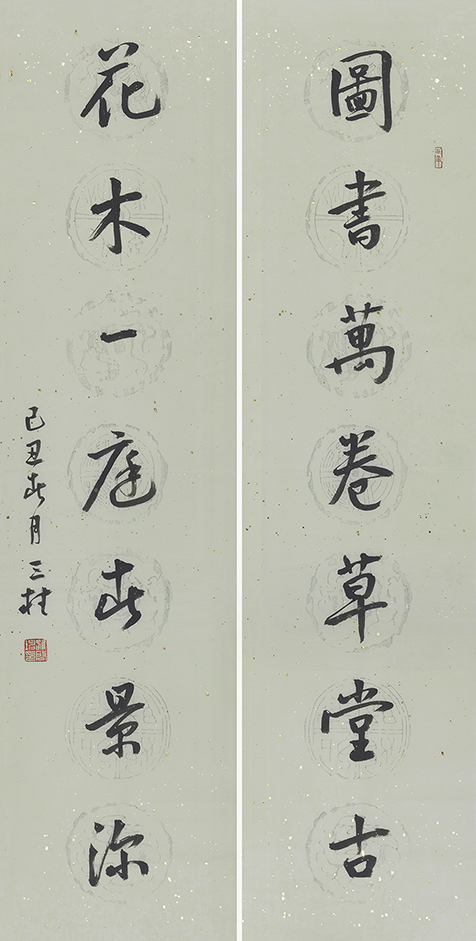 圖書萬卷草堂古
花木一庭春景深
己丑春月 三桂